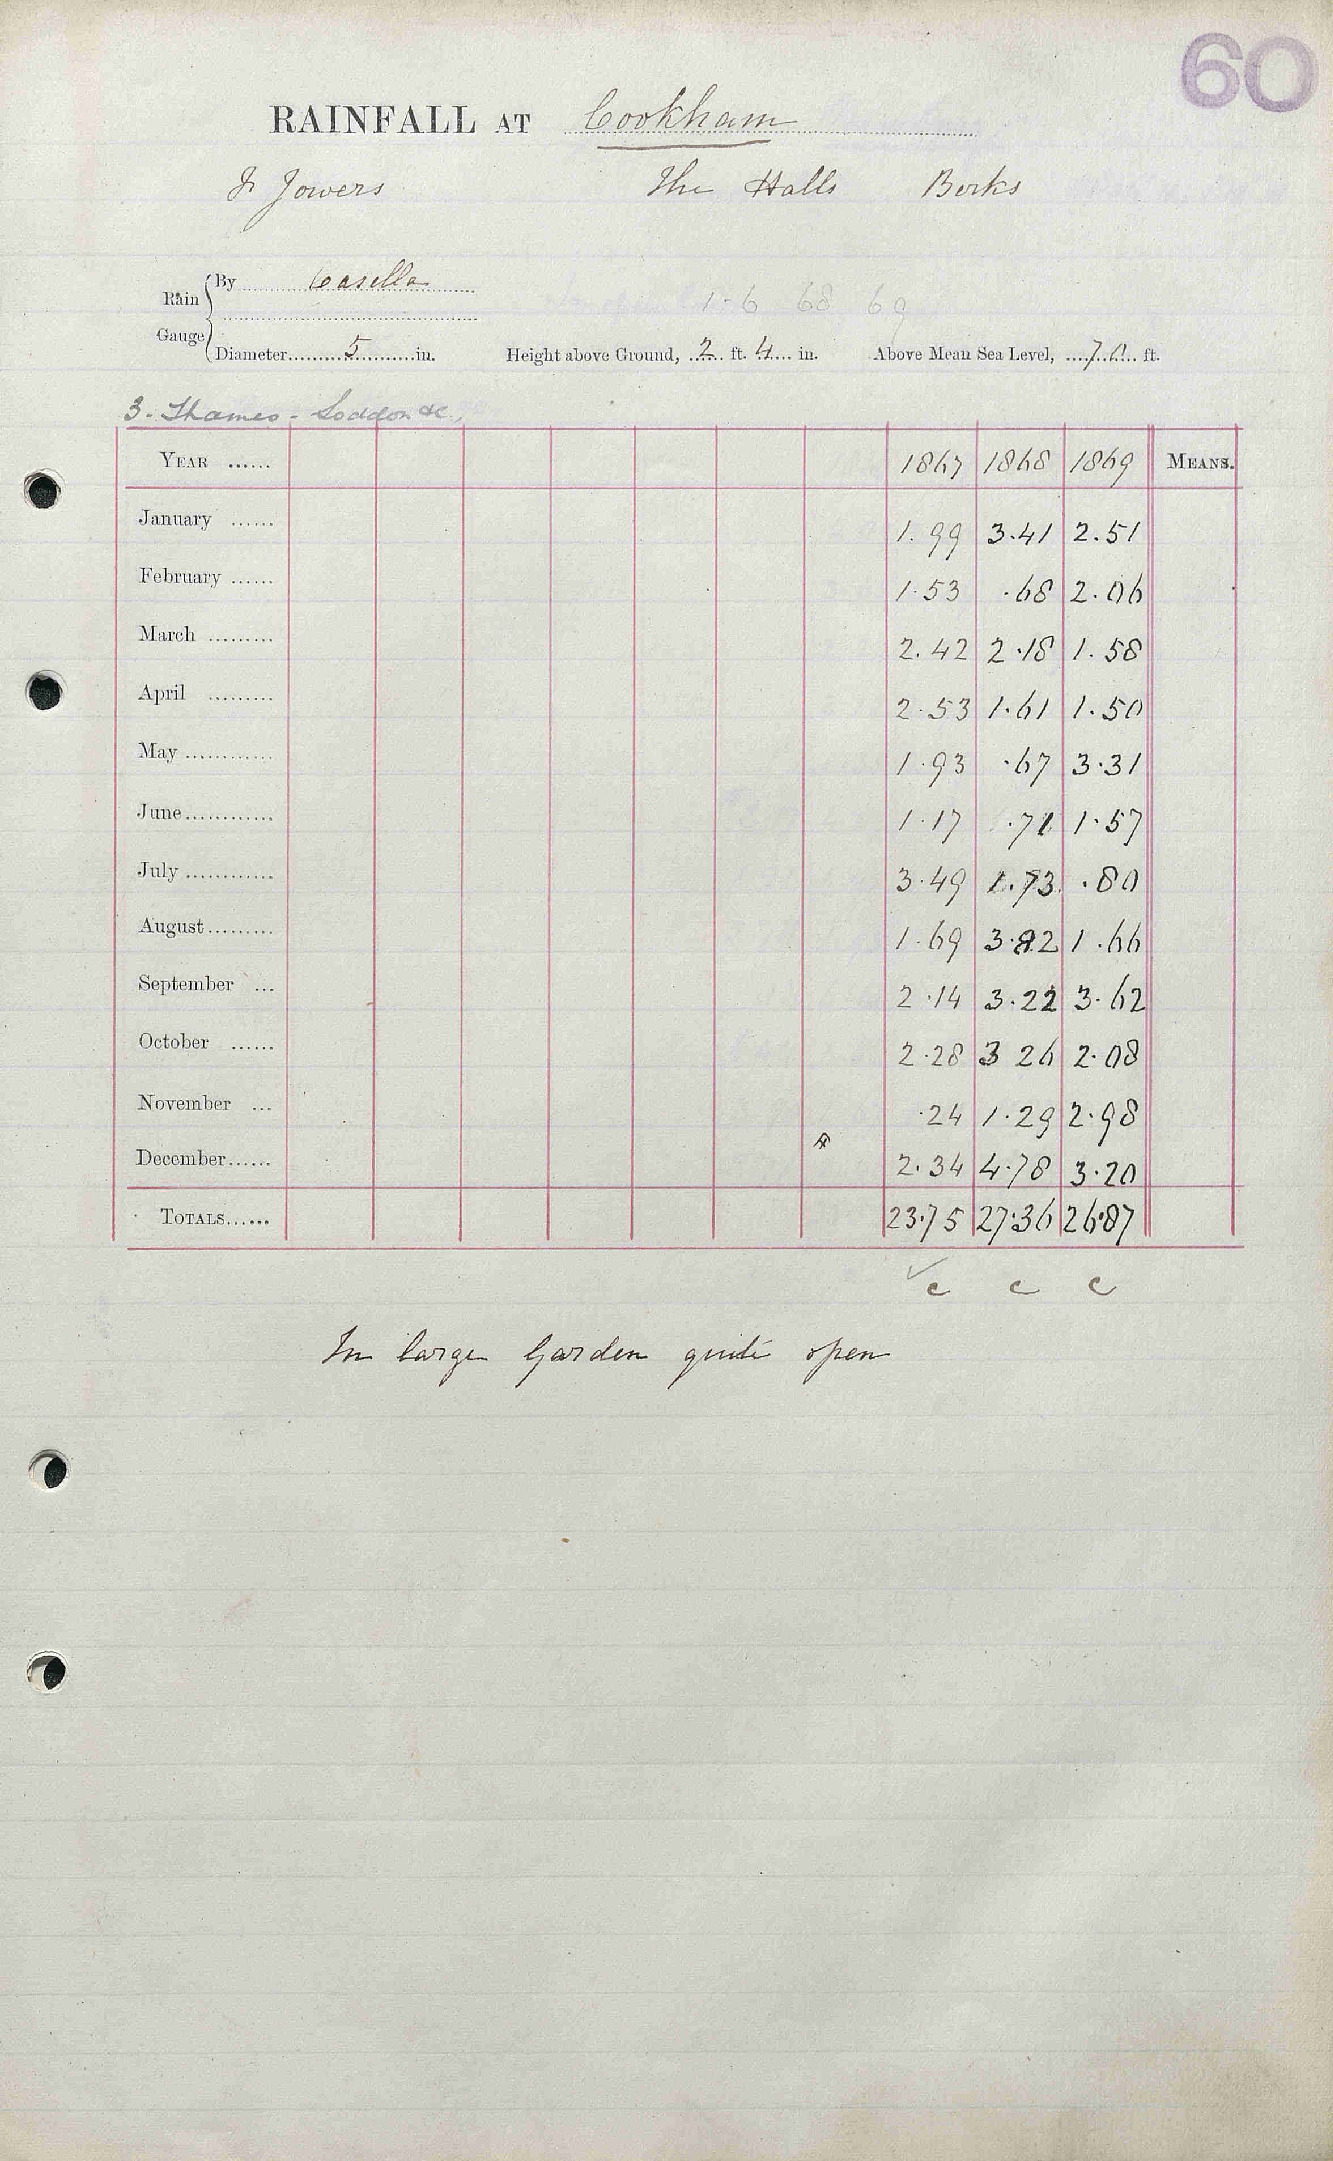 60
RAINFALL AT Cookham
J Jowers The Halls Berks
Rain Gauge By Casella
1-6 68 69
Diameter.........5.........in. Height above Ground, 2 ft. 4 in. Above Mean Sea Level, 70 ft.
3. Thames - Loddon &c.
YEAR ...... 1867 1868 1869 MEANS.
January ...... 1.99 3.41 2.51
February ...... 1.53 .68 2.06
March ......... 2.42 2.18 1.58
April ......... 2.53 1.61 1.50
May ............ 1.93 .67 3.31
June ............ 1.17 .71 1.57
July ............ 3.49 1.73 .80
August ......... 1.69 3.82 1.66
September ... 2.14 3.22 3.62
October ...... 2.28 3 26 2.08
November ... .24 1.29 2.98
December ...... 2.34 4.78 3.20
TOTALS ...... 23.75 27.36 26.87
c c c
In large Garden quite open